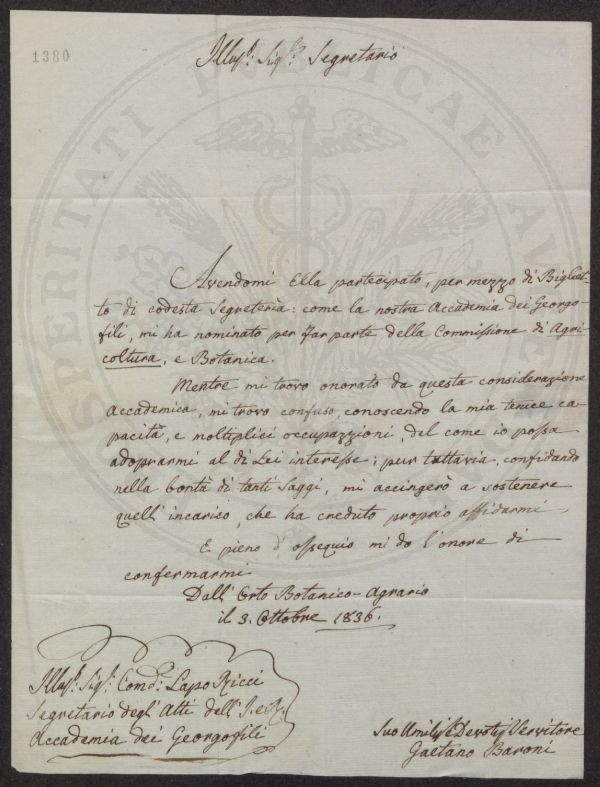 1380
Illusṫ: Sigṙ: Segretario
SPERITATI PUBLICAE
Avendomi Ella partecipato, per mezzo di Bigliet-
to di codesta Segreteria: come la nostra Accademia dei Georgo-
fili, mi ha nominato per far parte della Commissione di Agri-
coltura, e Botanica.
Mentre mi trovo onorato da questa considerazione
Accademica, mi trovo confuso, conoscendo la mia tenice ca-
pacità, e moltiplici occupazzioni, del come io possa
adoprarmi al di Lei interesse; pur tuttavia, confidando
nella bontà di tanti Saggi, mi accingerò a sostenere
quell' incarico, che ha creduto proprio affidarmi.
E pieno d'ossequio mi do l'onore di
confermarmi
Dall' Orto Botanico-Agrario
il 3. Ottobre 1836.
Illusṫ: Sigṙ: Comḋ: Lapo Ricci
Segretario degli Atti dell' I. e R.
Accademia dei Georgofili
Suo Umilṡ Devotṡ Servitore
Gaetano Baroni